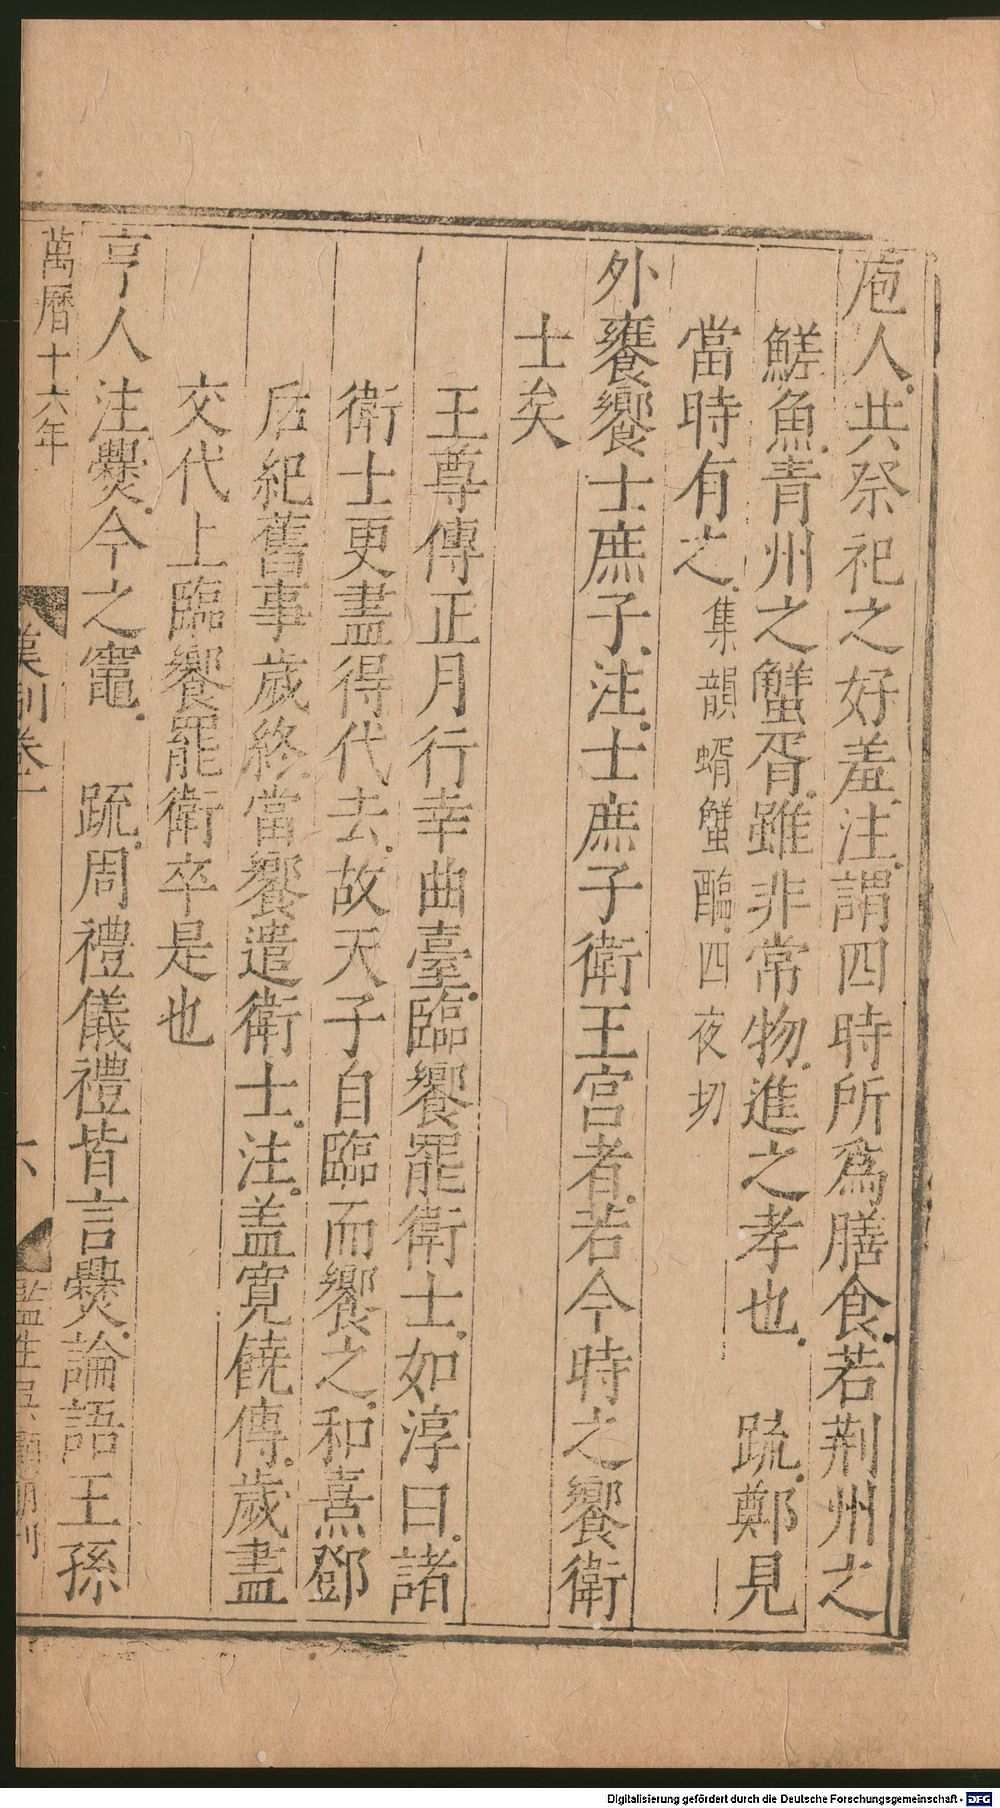 庖人共祭祀之好羞注謂四時所爲膳食若荆州之
䱹魚青州之蟹胥雖非常物進之孝也 䟽鄭見
當時有之集韻蝑蟹醢四夜切
外饔饗士庶子注士庶子衛王宮者若今時之饗衛
士矣
王尊傳正月行幸曲臺臨饗罷衛士如淳曰諸
衛士更盡得代去故天子自臨而饗之和熹鄧
后紀舊事歲終當饗遣衛士注盖寬饒傳歲盡
交代上臨饗罷衛卒是也
亨人注爨今之竈 䟽周禮儀禮皆言爨論語王孫
萬曆十六年
漢制卷一
六
監生
刋
Digitalisierung gefördert durch die Deutsche Forschungsgemeinschaft - DFG